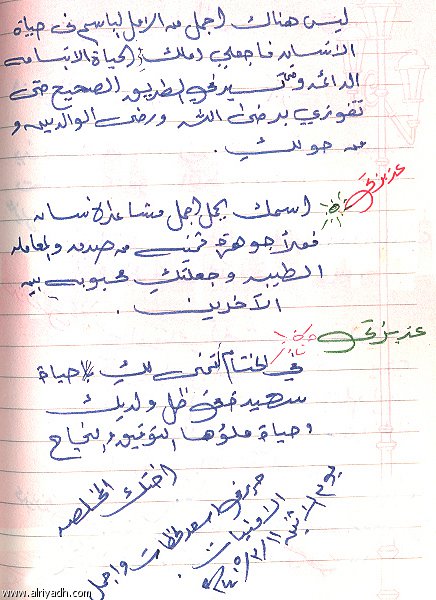 ليس هناك اجمل من الامل الباسم في حياة
الانسان فاجعلي املك في الحياة الابتسامه
الدائمه وسيري في الطريق الصحيح حتى
تفوزي برضى الله ورضى الوالديين و
من حولك .
عزيزتي
اسمك يحمل اجمل مشاعر انسانه
جوهرة ثمينه من صدق والمعامله
الطيبه وجعلتك محبوبه بين
الآخرين .
عزيزتي
في الختام اتمنى لك حياة
سعيدة في ظل والديك
وحياة ملؤها التوفيق والنجاح
اختك المخلصه
اسعد لحظات واجمل
الامنيات
يوم الاثنين
www.alriyadh.com